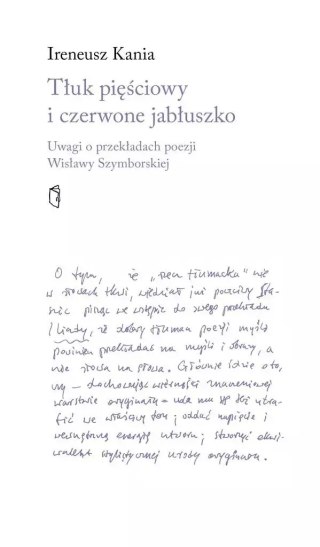 Ireneusz Kania
Tłuk pięściowy
i czerwone jabłuszko
Uwagi o przekładach poezji
Wisławy Szymborskiej
O tym, że „rzecz tłumacka” nie
w słowach tkwi, wiedział już poczciwy Sta-
szic pisząc we wstępie do swego przekładu
Iliady, iż dobry tłuman poezji myśli
powinien przekładać na myśli i obrazy, a
nie słowa na słowa. Głównie idzie o to,
by – dochowując wierności znaczeniowej
warstwie oryginału – uda mu się też utra-
fić we właściwy ton; oddać napięcie i
wewnętrzną energię utworu; stworzyć ekwi-
walent stylistycznej urody oryginału.